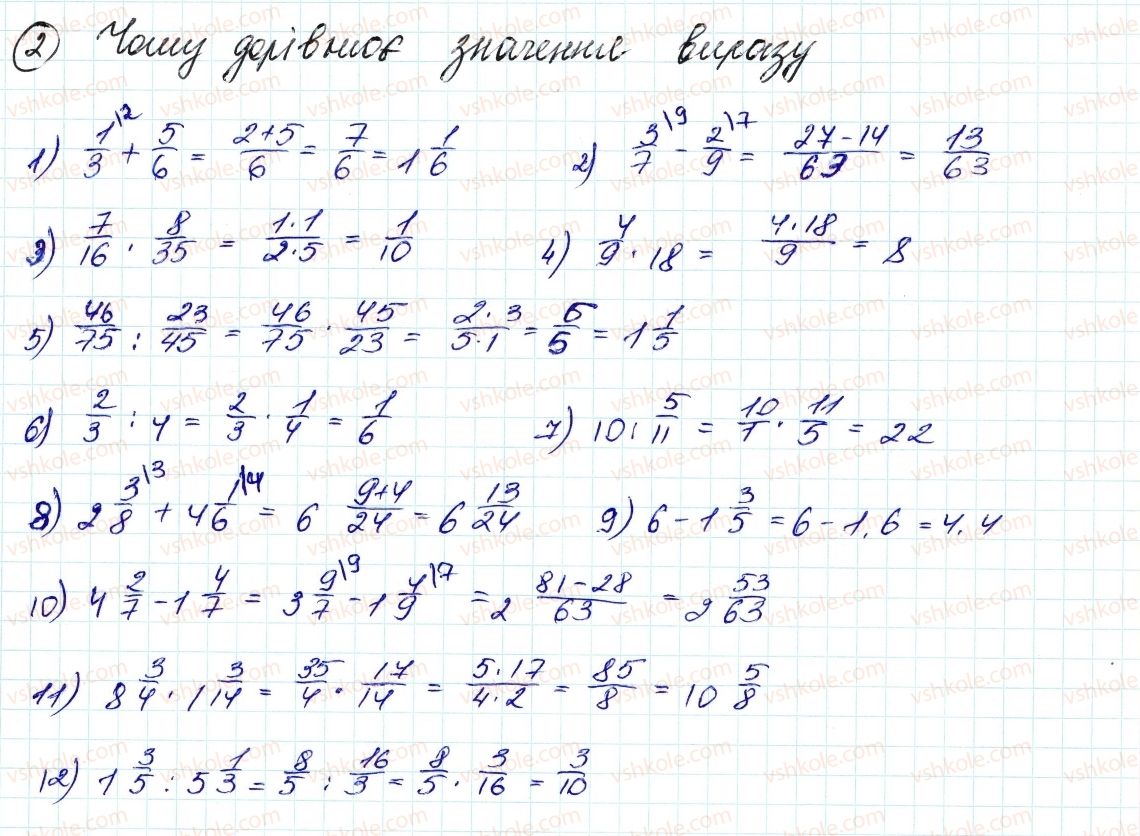 2 Чому дорівнює значення виразу
1) 1/3\2 + 5/6 = (2+5)/6 = 7/6 = 1 1/6 2) 3/7\9 - 2/9\7 = (27-14)/63 = 13/63
3) 7/16 · 8/35 = (1·1)/(2·5) = 1/10 4) 4/9 · 18 = (4·18)/9 = 8
5) 46/75 : 23/45 = 46/75 · 45/23 = (2·3)/(5·1) = 6/5 = 1 1/5
6) 2/3 : 4 = 2/3 · 1/4 = 1/6 7) 10 : 5/11 = 10/1 · 11/5 = 22
8) 2 3/8\3 + 4 1/6\4 = 6 (9+4)/24 = 6 13/24 9) 6 - 1 3/5 = 6 - 1,6 = 4,4
10) 4 2/7 - 1 4/7 = 3 9/7\9 - 1 4/9\7 = 2 (81-28)/63 = 2 53/63
11) 8 3/4 · 1 3/14 = 35/4 · 17/14 = (5·17)/(4·2) = 85/8 = 10 5/8
12) 1 3/5 : 5 1/3 = 8/5 : 16/3 = 8/5 · 3/16 = 3/10
vshkole.com